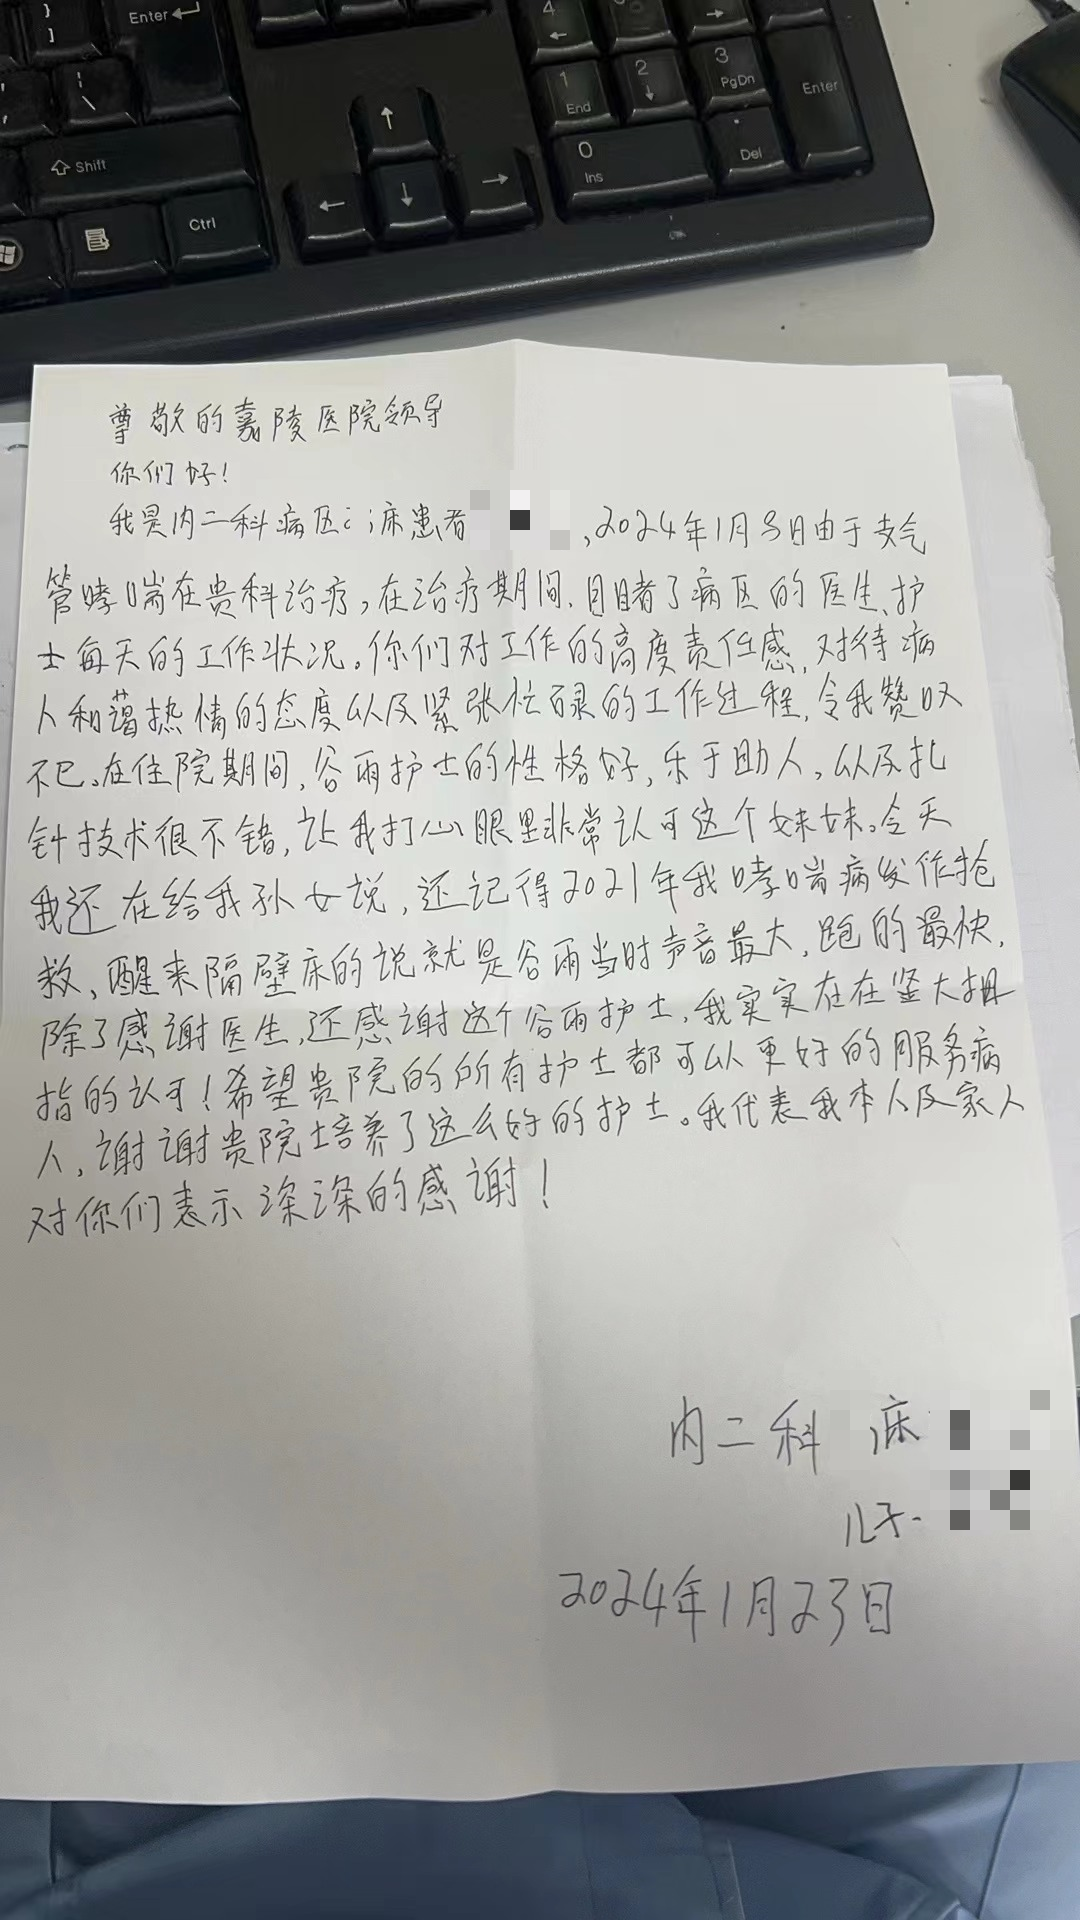 Enter
}
]
|
\
Shift
Ctrl
4
1
End
2
3
PgDn
Enter
0
Ins
.
Del
尊敬的嘉陵医院领导
你们好!
我是内二科病区 床患者 ,2024年1月8日由于支气
管哮喘在贵科治疗,在治疗期间,目睹了病区的医生、护
士每天的工作状况。你们对工作的高度责任感,对待病
人和蔼热情的态度以及紧张忙碌的工作过程,令我赞叹
不已。在住院期间,谷雨护士的性格好,乐于助人,以及扎
针技术很不错,让我打心眼里非常认可这个妹妹。今天
我还在给我孙女说,还记得2021年我哮喘病发作抢
救,醒来隔壁床的说就是谷雨当时声音最大,跑的最快,
除了感谢医生,还感谢这个谷雨护士,我实实在在竖大拇
指的认可!希望贵院的所有护士都可以更好的服务病
人,谢谢贵院培养了这么好的护士。我代表我本人及家人
对你们表示深深的感谢!
内二科 床
儿子.
2024年1月23日